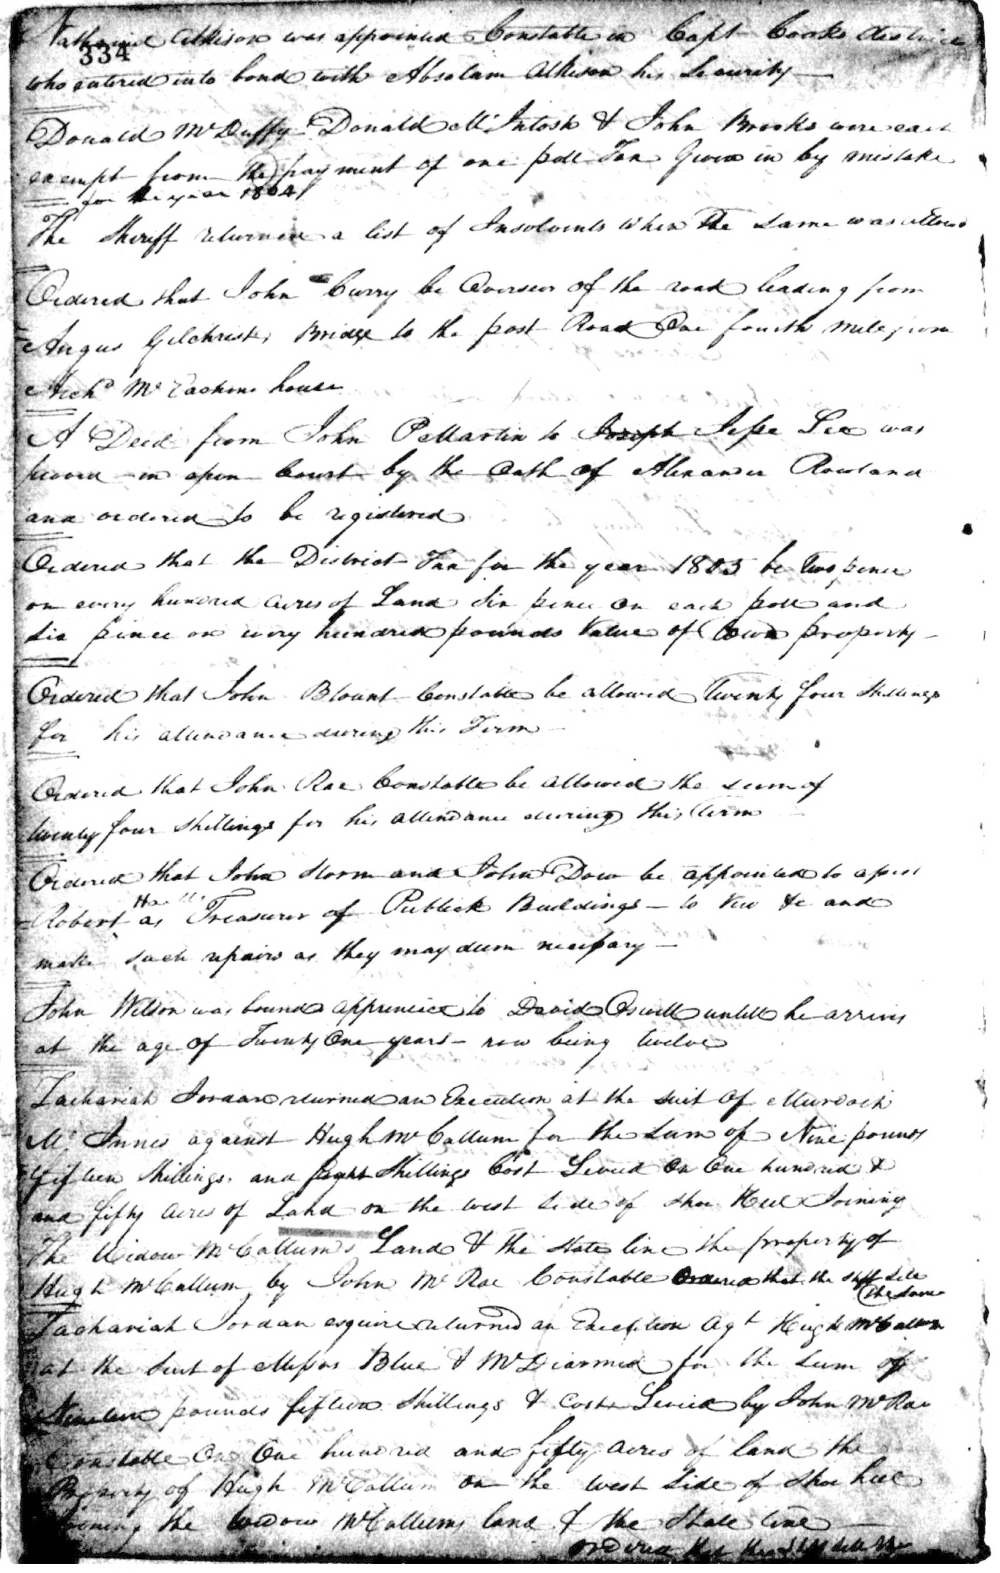 Nathaniel Atkison was appointed Constable in Capt Cooks district
334
who entered into bond with Absolam Atkison his Security —
Donald McDuffy Donald McIntosh & John Brooks were each
exempt from the payment of one poll Tax Given in by mistake
for the year 1804
The Sheriff returned a list of Insolvents When The Same was allowed
Ordered that John Curry be Overseer of the road leading from
Angus Gilchrists Bridge to the post Road One fourth mile from
Archd McEacherns house
A Deed from John PeMartin to Joseph Jesse Lee was
proved in open Court by the Oath of Alexander Rowland
and ordered to be registered
Ordered that the District Tax for the year 1805 be two pence
on every hundred acres of Land Six pence on each poll and
Six pence on every hundred pounds Value of Town property —
Ordered that John Blount Constable be allowed Twenty four Shillings
for his attendance during this Term —
Ordered that John Rae Constable be allowed the sum of
twenty four Shillings for his attendance during this term —
Ordered that John Storm and John Dow be appointed to assist
Robert as Treasurer of Publick Buildings — to view &c and
make such repairs as they may deem necessary —
John Wilson was bound apprentice to David untill he arrives
at the age of Twenty One years — now being twelve
Zachariah Jordan returned an Execution at the Suit of Murdoch
Mc Innes against Hugh McCallum for the Sum of Nine pounds
fifteen Shillings and Eight Shillings Cost Levied On One hundred &
and fifty acres of Land on the west Side of Shoe Heel Joining
The Widow McCallums Land & the State line the property of
Hugh McCallum by John McRae Constable Ordered that the Shff Sell
the Same
Zachariah Jordan esquire returned an Execution Agt Hugh McCallum
at the Suit of Messrs Blue & McDiarmid for the Sum of
Nineteen pounds fifteen Shillings & Costs Levied by John McRae
Constable On One hundred and fifty acres of land the
Property of Hugh McCallum on the west Side of Shoe heel
Joining the widow McCallums land & the State line —
Ordered that the Shff sell the